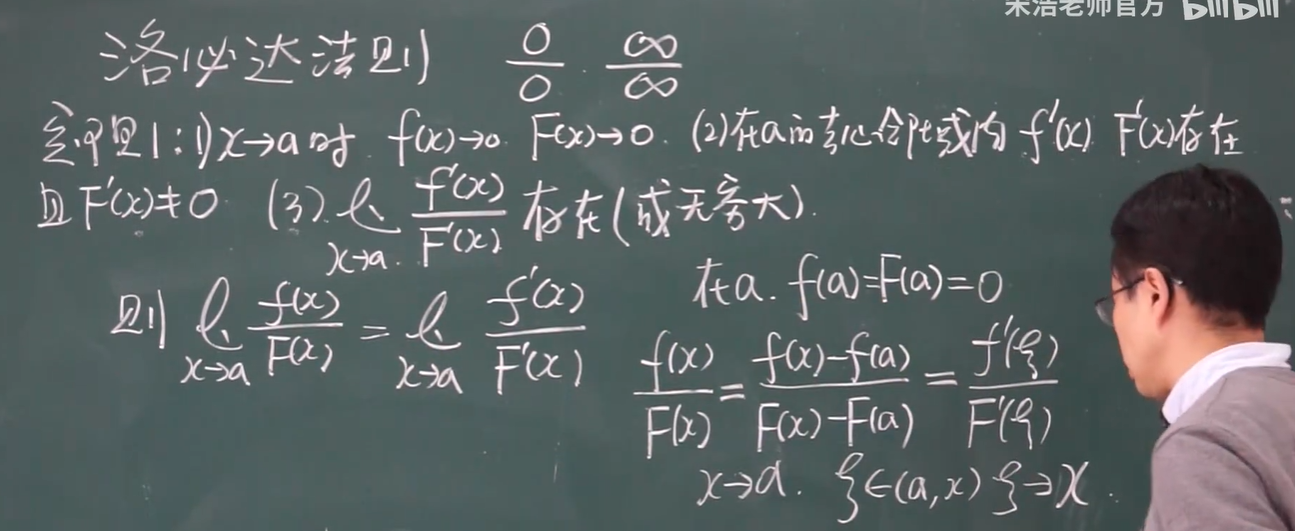 宋浩老师官方 bilibili
洛必达法则 0/0 . ∞/∞
定理1:1)x→a时 f(x)→0 F(x)→0. (2)在a的去心邻域内 f'(x) F'(x)存在
且F'(x)≠0 (3). l. x→a. f'(x)/F'(x) 存在(或无穷大).
则 l. x→a f(x)/F(x) = l. x→a f'(x)/F'(x)
在a. f(a)=F(a)=0
f(x)/F(x) = f(x)-f(a)/F(x)-F(a) = f'(ξ)/F'(ξ)
x→a. ξ∈(a,x) ξ→x.